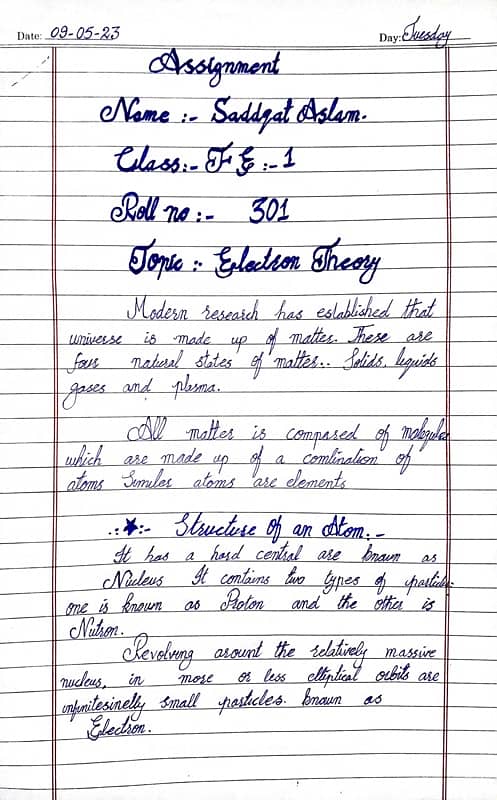 Date: 09-05-23 Day: Tuesday
Assignment
Name :- Saddqat Aslam.
Class:- F E :- 1
Roll no :- 301
Topic :- Electron Theory
Modern research has established that
universe is made up of matter. These are
four natural states of matter.. Solids, liquids
gases and plasma.
All matter is composed of molecules
which are made up of a combination of
atoms Similer atoms are elements
.:★:- Structure of an Atom.-
It has a hard central are known as
Nucleus It contains two types of particles
one is known as Proton and the other is
Nutron.
Revolving around the relatively massive
nucleus, in more or less elliptical orbits are
infinitesinelly small particles. known as
Electron.